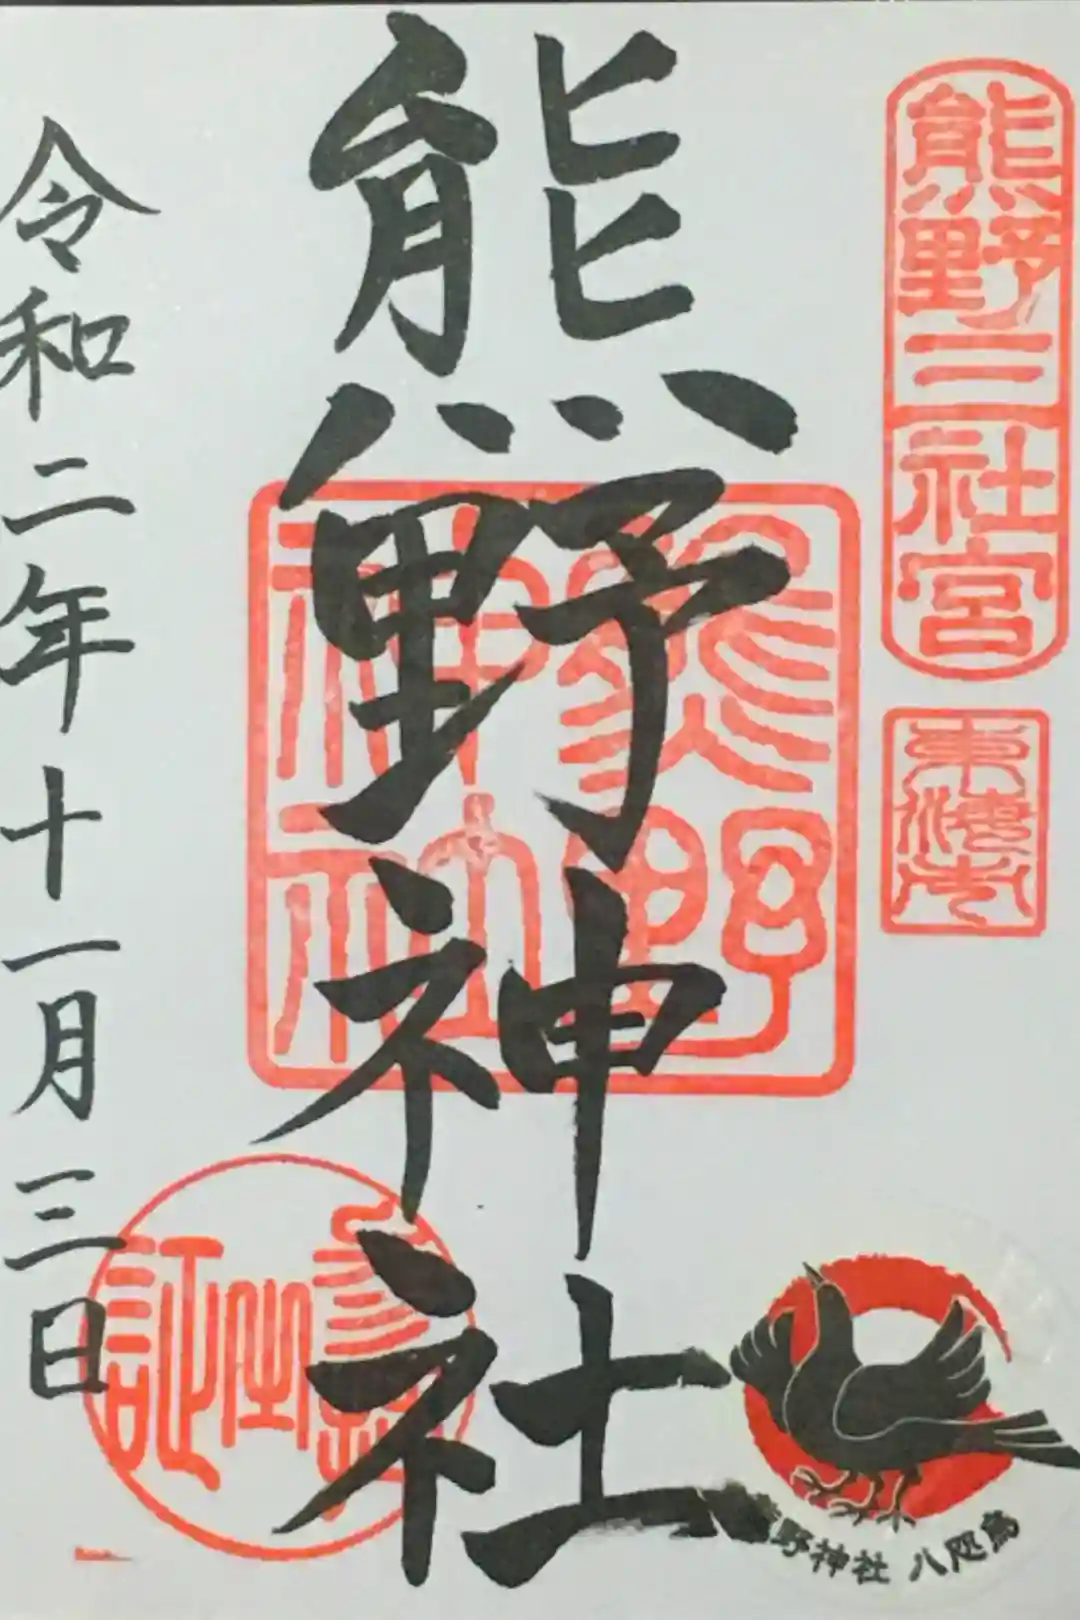 熊野三社宮
東溝市
熊野神社
熊野
神社
令和二年十一月三日
参
宮
証
野神社 八咫烏